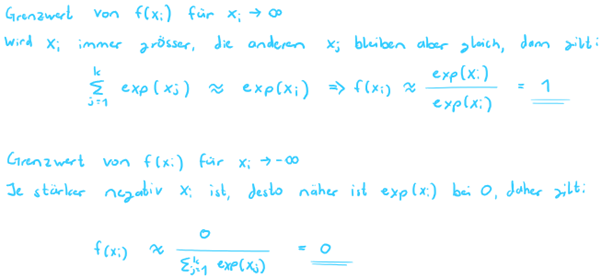 Grenzwert von f(xᵢ) für xᵢ → ∞
Wird xᵢ immer grösser, die anderen xⱼ bleiben aber gleich, dann gilt:
∑ⱼ₌₁ᵏ exp(xⱼ) ≈ exp(xᵢ) ⇒ f(xᵢ) ≈ exp(xᵢ) / exp(xᵢ) = 1
Grenzwert von f(xᵢ) für xᵢ → -∞
Je stärker negativ xᵢ ist, desto näher ist exp(xᵢ) bei 0, daher gilt:
f(xᵢ) ≈ 0 / ∑ⱼ₌₁ᵏ exp(xⱼ) = 0